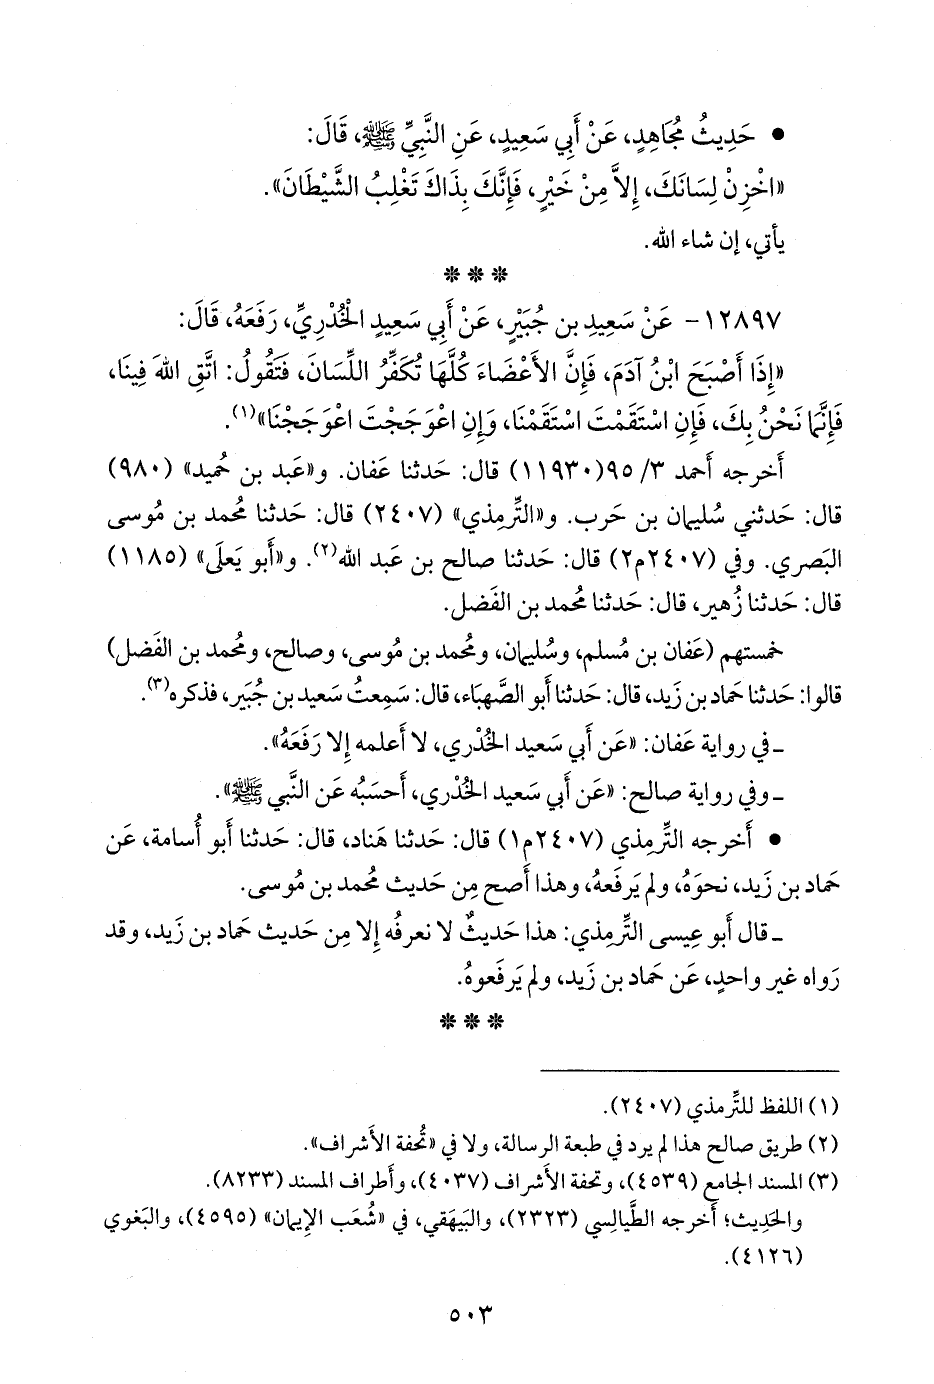 • حَدِيثُ مُجَاهِدٍ، عَنْ أَبِي سَعِيدٍ، عَنِ النَّبِيِّ ﷺ، قَالَ:
«اخْزِنْ لِسَانَكَ، إِلاَّ مِنْ خَيْرٍ، فَإِنَّكَ بِذَاكَ تَغْلِبُ الشَّيْطَانَ».
يأتي، إن شاء الله.
* * *
١٢٨٩٧- عَنْ سَعِيدِ بن جُبَيْرٍ، عَنْ أَبِي سَعِيدٍ الخُدْرِيِّ، رَفَعَهُ، قَالَ:
«إِذَا أَصْبَحَ ابْنُ آدَمَ، فَإِنَّ الأَعْضَاءَ كُلَّهَا تُكَفِّرُ اللِّسَانَ، فَتَقُولُ: اتَّقِ اللهَ فِينَا،
فَإِنَّمَا نَحْنُ بِكَ، فَإِنِ اسْتَقَمْتَ اسْتَقَمْنَا، وَإِنِ اعْوَجَجْتَ اعْوَجَجْنَا»(١).
أَخرجه أَحمد ٣/ ٩٥(١١٩٣٠) قال: حَدثنا عَفان. و«عَبد بن حُميد» (٩٨٠)
قال: حَدثني سُليمان بن حَرب. و«التِّرمِذي» (٢٤٠٧) قال: حَدثنا مُحمد بن مُوسى
البَصري. وفي (٢٤٠٧م٢) قال: حَدثنا صالح بن عَبد الله(٢). و«أَبو يَعلَى» (١١٨٥)
قال: حَدثنا زُهير، قال: حَدثنا مُحمد بن الفَضل.
خمستهم (عَفان بن مُسلم، وسُليمان، ومُحمد بن مُوسى، وصالح، ومُحمد بن الفَضل)
قالوا: حَدثنا حَماد بن زَيد، قال: حَدثنا أَبو الصَّهباء، قال: سَمِعتُ سَعيد بن جُبَير، فذكره(٣).
ـ في رواية عَفان: «عَن أَبي سَعيد الخُدْري، لا أَعلمه إِلا رَفَعَهُ».
ـ وفي رواية صالح: «عَن أَبي سَعيد الخُدْري، أَحسَبُه عَن النَّبي ﷺ».
• أَخرجه التِّرمِذي (٢٤٠٧م١) قال: حَدثنا هَناد، قال: حَدثنا أَبو أُسامة، عَن
حَماد بن زَيد، نحوَهُ، ولم يَرفَعهُ، وهذا أَصح مِن حَديث مُحمد بن مُوسى.
ـ قال أَبو عِيسى التِّرمِذي: هذا حَديثٌ لا نعرفُه إِلا مِن حَديث حَماد بن زَيد، وقد
رَواه غير واحدٍ، عَن حَماد بن زَيد، ولم يَرفَعوهُ.
* * *
(١) اللفظ للتِّرمذي (٢٤٠٧).
(٢) طريق صالح هذا لم يرد في طبعة الرسالة، ولا في «تُحفة الأَشراف».
(٣) المسند الجامع (٤٥٣٩)، وتحفة الأَشراف (٤٠٣٧)، وأَطراف المسند (٨٢٣٣).
والحَدِيث؛ أَخرجه الطَّيالِسي (٢٣٢٣)، والبَيهَقي، في «شُعَب الإِيمان» (٤٥٩٥)، والبَغوي
(٤١٢٦).
٥٠٣